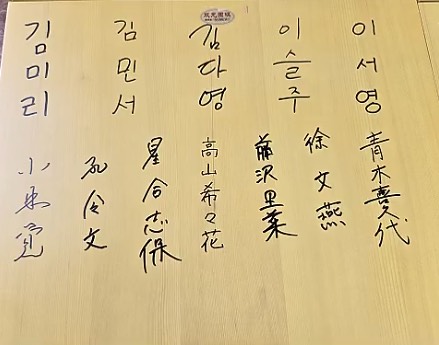 이서영
이슬주
김다영
김민서
김미리
青木喜久代
徐文燕
藤沢里菜
高山希々花
星合志保
孔令文
小林覚